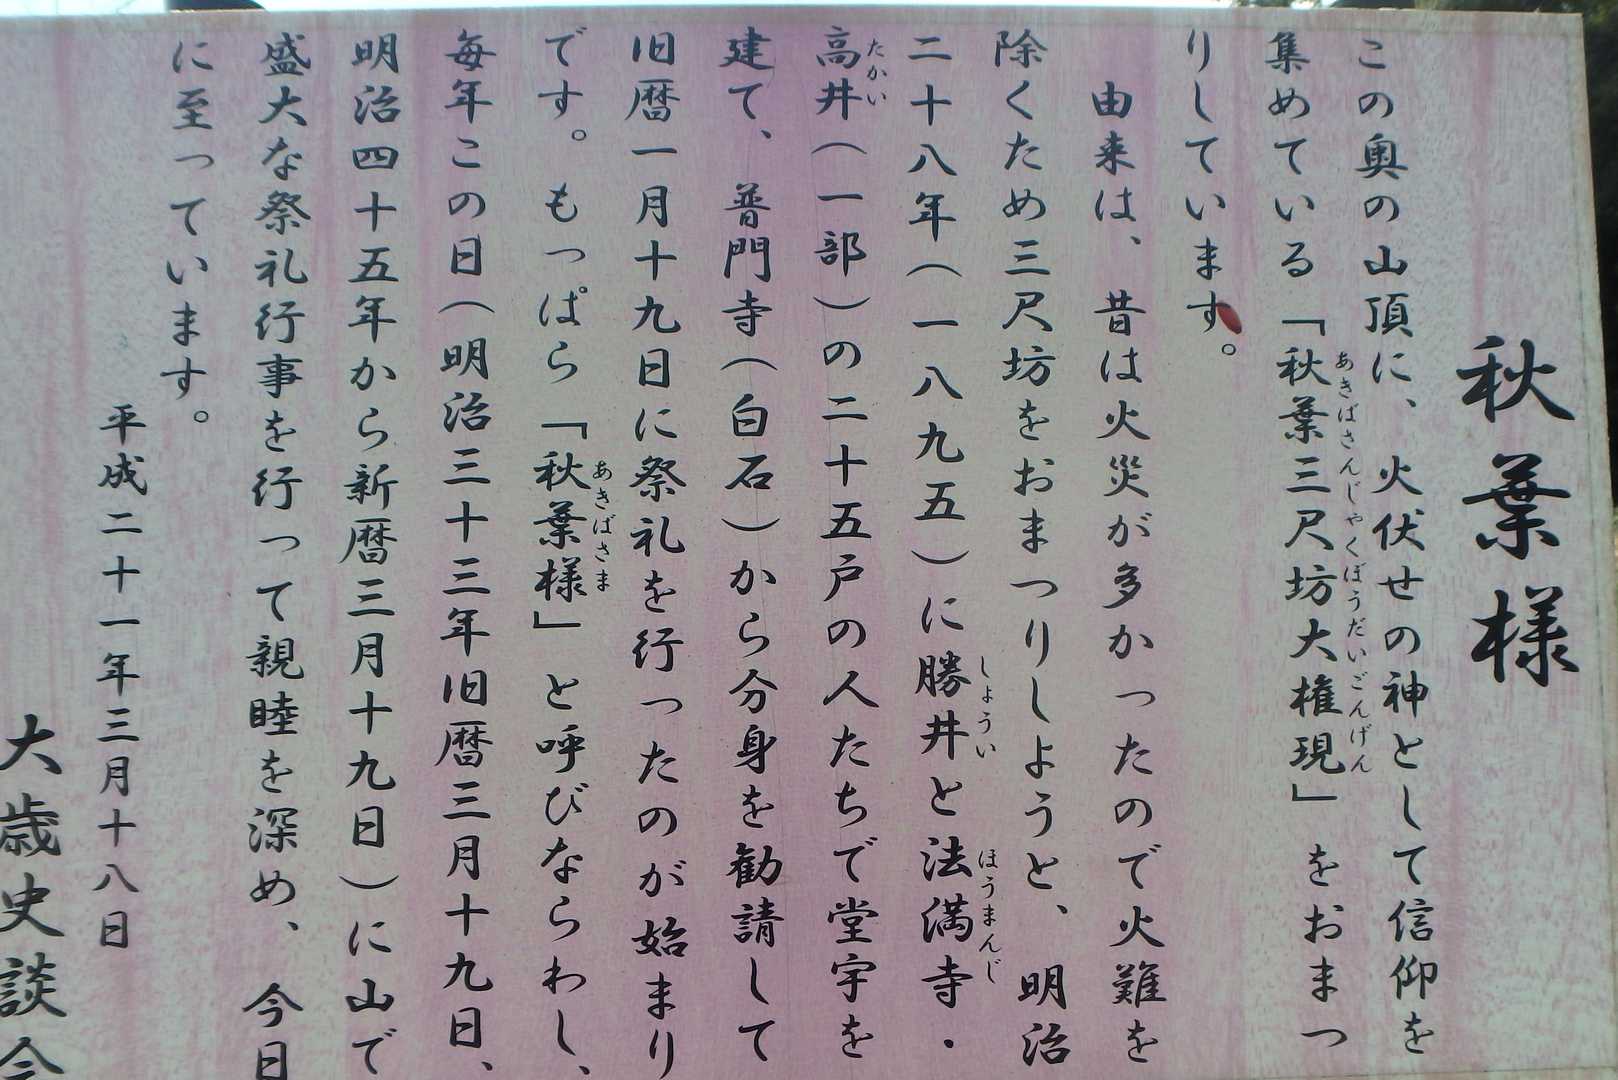 秋葉様
この奥の山頂に、火伏せの神として信仰を
集めている「秋葉三尺坊大権現」をおまつ
あきばさんじゃくぼうだいごんげん
りしています。
由来は、昔は火災が多かったので火難を
除くため三尺坊をおまつりしようと、明治
二十八年(一八九五)に勝井と法満寺・
しょうい
ほうまんじ
高井(一部)の二十五戸の人たちで堂宇を
たかい
建て、普門寺(白石)から分身を勧請して
旧暦一月十九日に祭礼を行ったのが始まり
です。もっぱら「秋葉様」と呼びならわし、
あきばさま
毎年この日(明治三十三年旧暦三月十九日、
明治四十五年から新暦三月十九日)に山で
盛大な祭礼行事を行って親睦を深め、今日
に至っています。
平成二十一年三月十八日
大歳史談会